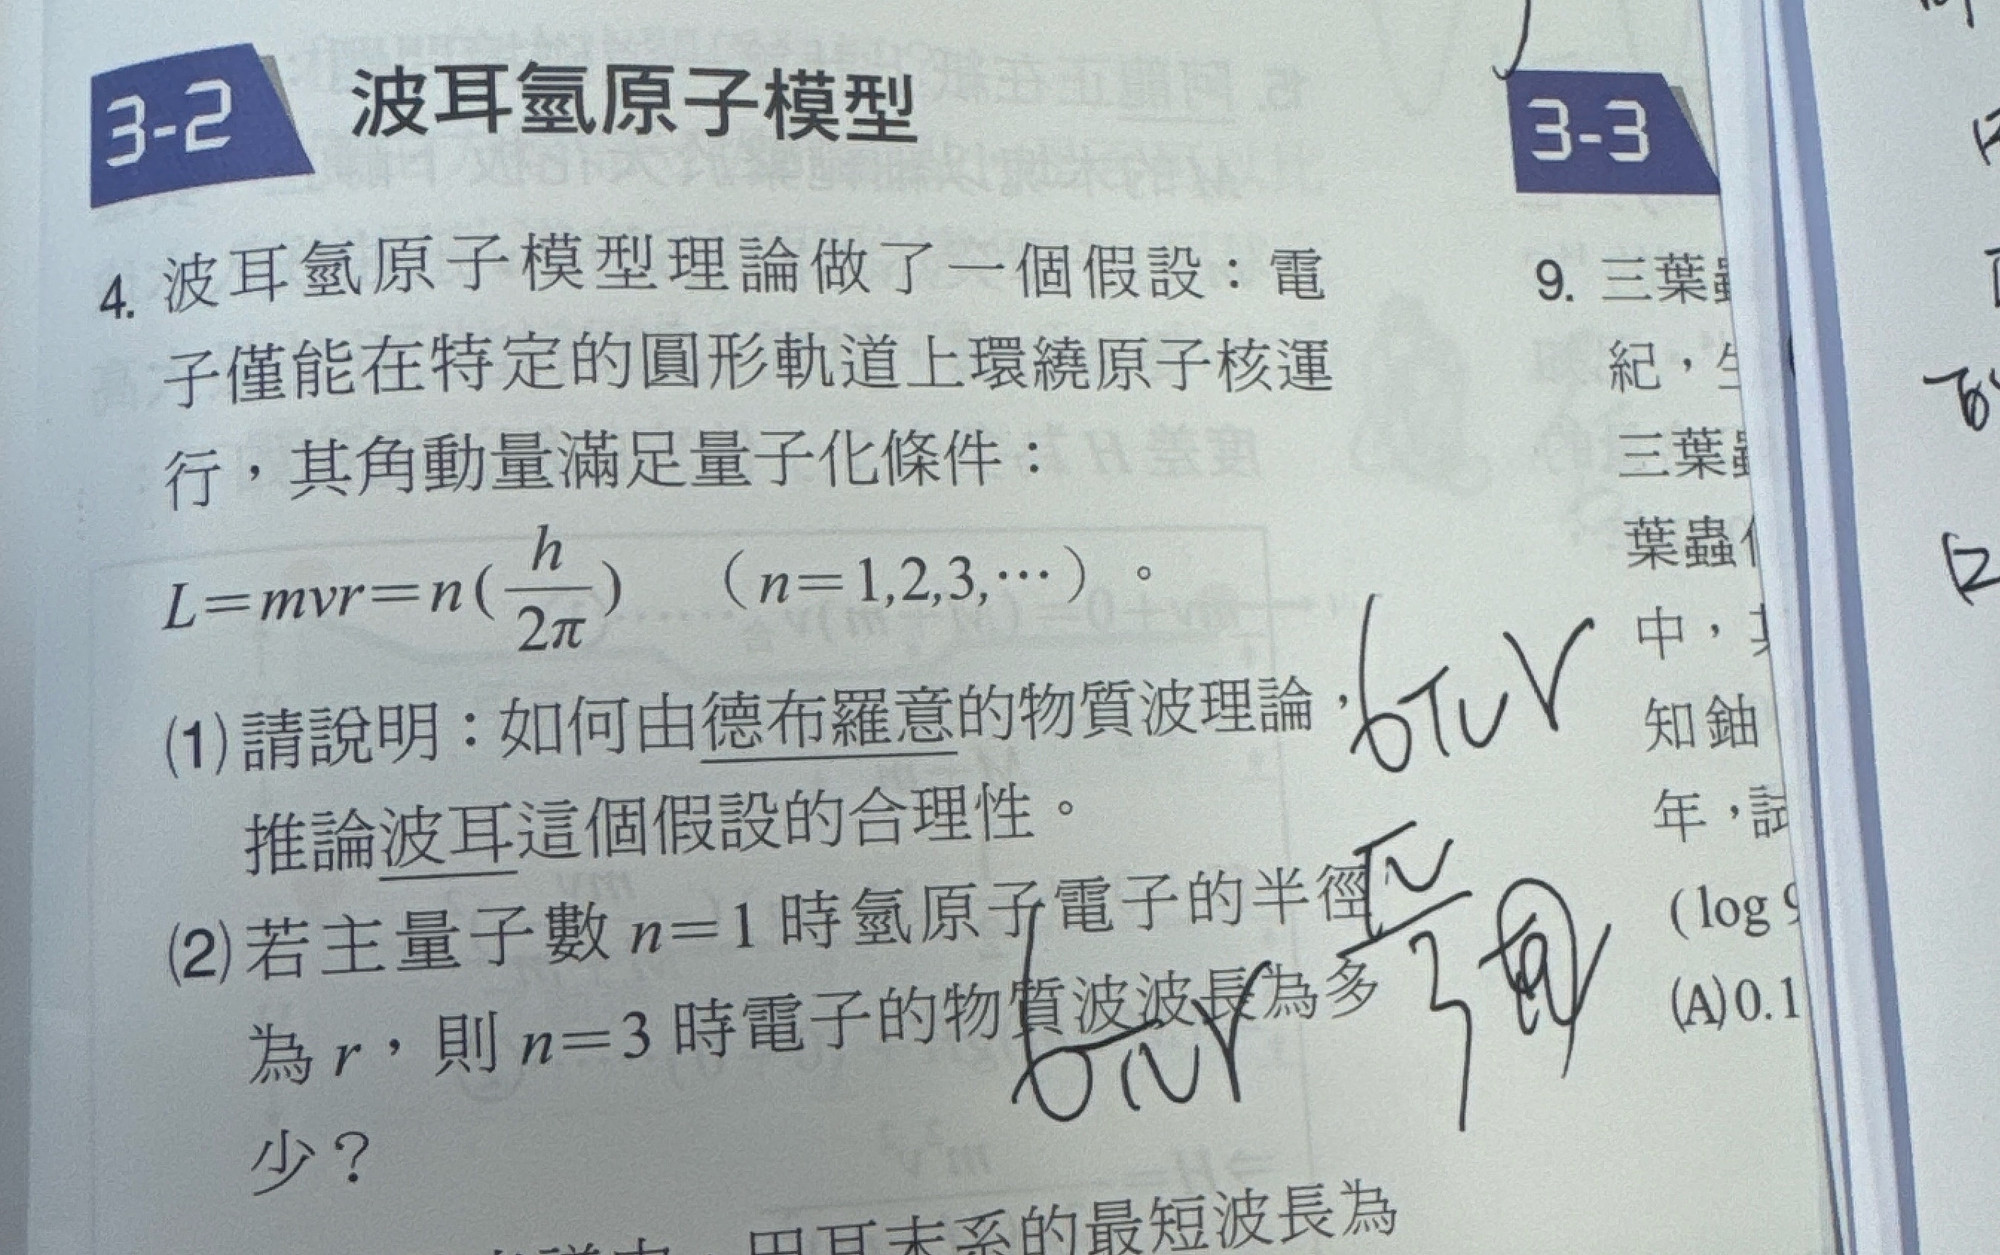 3-2 波耳氫原子模型
4. 波耳氫原子模型理論做了一個假設：電
子僅能在特定的圓形軌道上環繞原子核運
行，其角動量滿足量子化條件：
L=mvr=n(h/2π) （n=1,2,3,…）。
(1)請說明：如何由德布羅意的物質波理論，
推論波耳這個假設的合理性。
(2)若主量子數 n=1 時氫原子電子的半徑
為 r，則 n=3 時電子的物質波波長為多
少？
的最短波長為
6πr
6πr
3-3
9. 三葉
紀，生
三葉蟲
葉蟲
中，
知鈾
年，試
(log 9
(A)0.1